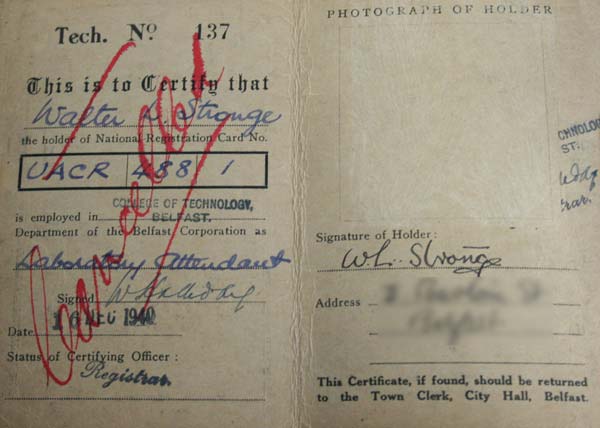 Tech. No 137
This is to Certify that
Walter L. Stronge
the holder of National Registration Card No.
UACR 488 1
COLLEGE OF TECHNOLOGY,
is employed in BELFAST.
Department of the Belfast Corporation as
Laboratory Attendant
Signed
Date 16 1940
Status of Certifying Officer :
Registrar.
Cancelled
PHOTOGRAPH OF HOLDER
ST.
Signature of Holder :
W.L. Stronge
Address
This Certificate, if found, should be returned
to the Town Clerk, City Hall, Belfast.